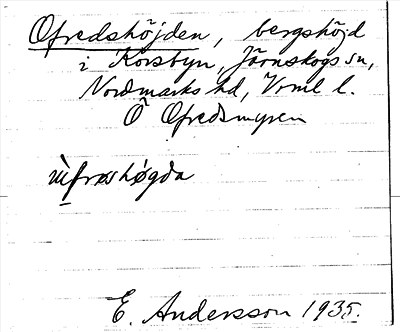 Ofredshöjden, bergshöjd
i Korsbyn, Järnskogs sn,
Nordmarks hd, Vrml l.
Ö Ofredsmyren
E. Andersson 1935.